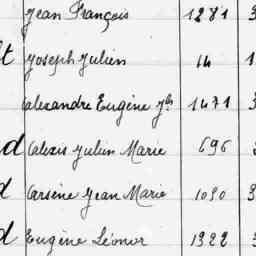 Jean François 1281 3
t Joseph Julien 14 1
Alexandre Eugène 1471 3
d Alexis Julien Marie 696
d Arsène Jean Marie 1030 3
d Eugène Léonor 1322 3